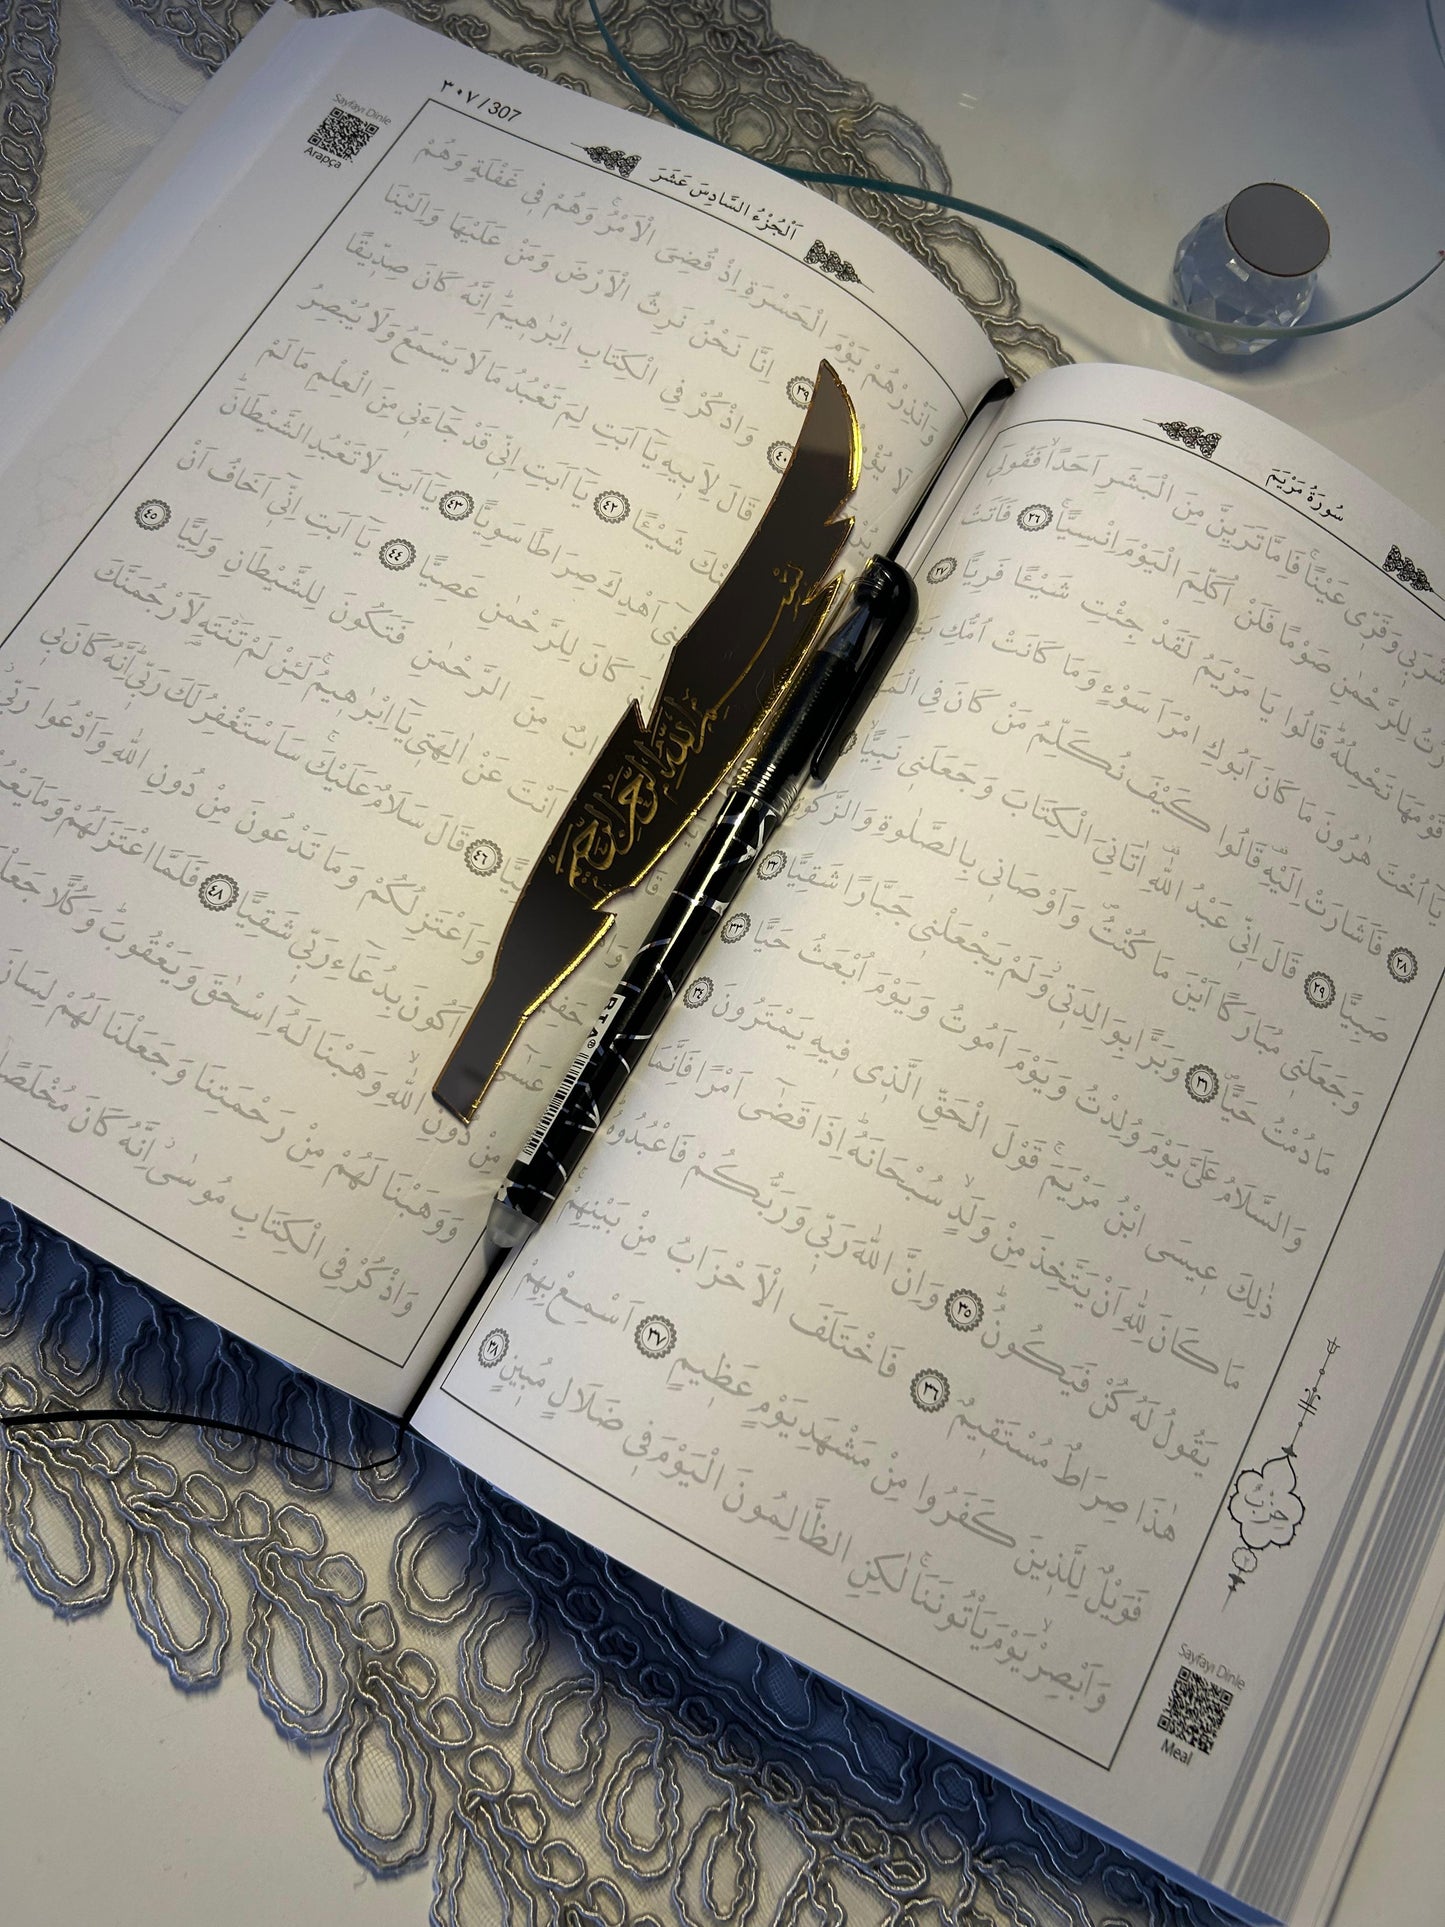 سُورَةُ مَرْيَمَ
وَقَرِّي عَيْنًاۚ فَاِمَّا تَرَيِنَّ مِنَ الْبَشَرِ اَحَدًاۙ فَقُولِي
لِلرَّحْمٰنِ صَوْمًا فَلَنْ اُكَلِّمَ الْيَوْمَ اِنْسِيًّاۚ ٢٦ فَاَتَتْ
قَوْمَهَا تَحْمِلُهُۜ قَالُوا يَا مَرْيَمُ لَقَدْ جِئْتِ شَيْـًٔا فَرِيًّا ٢٧
يَٓا اُخْتَ هٰرُونَ مَا كَانَ اَبُوكِ امْرَاَ سَوْءٍ وَمَا كَانَتْ اُمُّكِ
٢٨ فَاَشَارَتْ اِلَيْهِۜ قَالُوا كَيْفَ نُكَلِّمُ مَنْ كَانَ فِي
صَبِيًّا ٢٩ قَالَ اِنِّي عَبْدُ اللّٰهِۜ اٰتَانِيَ الْكِتَابَ وَجَعَلَنِي نَبِيًّاۙ
وَجَعَلَنِي مُبَارَكًا اَيْنَ مَا كُنْتُۖ وَاَوْصَانِي بِالصَّلٰوةِ وَالزَّكٰوةِ
مَا دُمْتُ حَيًّاۖ ٣١ وَبَرًّا بِوَالِدَتِيۘ وَلَمْ يَجْعَلْنِي جَبَّارًا شَقِيًّا ٣٢
وَالسَّلَامُ عَلَيَّ يَوْمَ وُلِدْتُ وَيَوْمَ اَمُوتُ وَيَوْمَ اُبْعَثُ حَيًّا ٣٣
ذٰلِكَ عِيسَى ابْنُ مَرْيَمَۚ قَوْلَ الْحَقِّ الَّذِي فِيهِ يَمْتَرُونَ ٣٤
مَا كَانَ لِلّٰهِ اَنْ يَتَّخِذَ مِنْ وَلَدٍۙ سُبْحَانَهُۜ اِذَا قَضٰٓى اَمْرًا فَاِنَّمَا
يَقُولُ لَهُ كُنْ فَيَكُونُۜ ٣٥ وَاِنَّ اللّٰهَ رَبِّي وَرَبُّكُمْ فَاعْبُدُوهُۜ
هٰذَا صِرَاطٌ مُسْتَقِيمٌ ٣٦ فَاخْتَلَفَ الْاَحْزَابُ مِنْ بَيْنِهِمْۚ
فَوَيْلٌ لِلَّذِينَ كَفَرُوا مِنْ مَشْهَدِ يَوْمٍ عَظِيمٍ ٣٧ اَسْمِعْ بِهِمْ
وَاَبْصِرْۙ يَوْمَ يَأْتُونَنَاۚ لٰكِنِ الظَّالِمُونَ الْيَوْمَ فِي ضَلَالٍ مُبِينٍ ٣٨
Sayfayı Dinle
Meal
٣٠٧ / 307
Sayfayı Dinle
Arapça
اَلْجُزْءُ السَّادِسَ عَشَرَ
وَاَنْذِرْهُمْ يَوْمَ الْحَسْرَةِ اِذْ قُضِيَ الْاَمْرُۚ وَهُمْ فِي غَفْلَةٍ وَهُمْ
لَا ٣٩ اِنَّا نَحْنُ نَرِثُ الْاَرْضَ وَمَنْ عَلَيْهَا وَاِلَيْنَا
٤٠ وَاذْكُرْ فِي الْكِتَابِ اِبْرٰهِيمَۜ اِنَّهُ كَانَ صِدِّيقًا
قَالَ لِاَبِيهِ يَٓا اَبَتِ لِمَ تَعْبُدُ مَا لَا يَسْمَعُ وَلَا يُبْصِرُ
شَيْـًٔا ٤٢ يَٓا اَبَتِ اِنِّي قَدْ جَٓاءَنِي مِنَ الْعِلْمِ مَا لَمْ
اَهْدِكَ صِرَاطًا سَوِيًّا ٤٣ يَٓا اَبَتِ لَا تَعْبُدِ الشَّيْطَانَۜ
كَانَ لِلرَّحْمٰنِ عَصِيًّا ٤٤ يَٓا اَبَتِ اِنِّٓي اَخَافُ اَنْ
مِنَ الرَّحْمٰنِ فَتَكُونَ لِلشَّيْطَانِ وَلِيًّا ٤٥
اَنْتَ عَنْ اٰلِهَتِي يَٓا اِبْرٰهِيمُۚ لَئِنْ لَمْ تَنْتَهِ لَاَرْجُمَنَّكَ
٤٦ قَالَ سَلَامٌ عَلَيْكَۚ سَاَسْتَغْفِرُ لَكَ رَبِّيۜ اِنَّهُ كَانَ بِي
وَاَعْتَزِلُكُمْ وَمَا تَدْعُونَ مِنْ دُونِ اللّٰهِ وَاَدْعُوا رَبِّي
اَكُونَ بِدُعَٓاءِ رَبِّي شَقِيًّا ٤٨ فَلَمَّا اعْتَزَلَهُمْ وَمَا
مِنْ دُونِ اللّٰهِۙ وَهَبْنَا لَهُٓ اِسْحٰقَ وَيَعْقُوبَۜ وَكُلًّا
وَوَهَبْنَا لَهُمْ مِنْ رَحْمَتِنَا وَجَعَلْنَا لَهُمْ لِسَانَ
وَاذْكُرْ فِي الْكِتَابِ مُوسٰٓىۘ اِنَّهُ كَانَ مُخْلَصًا
بسم الله الرحمن الرحيم